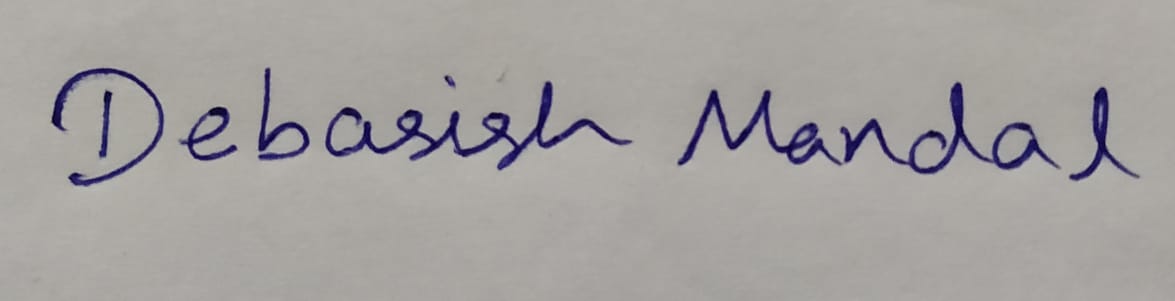 Debasish Mandal